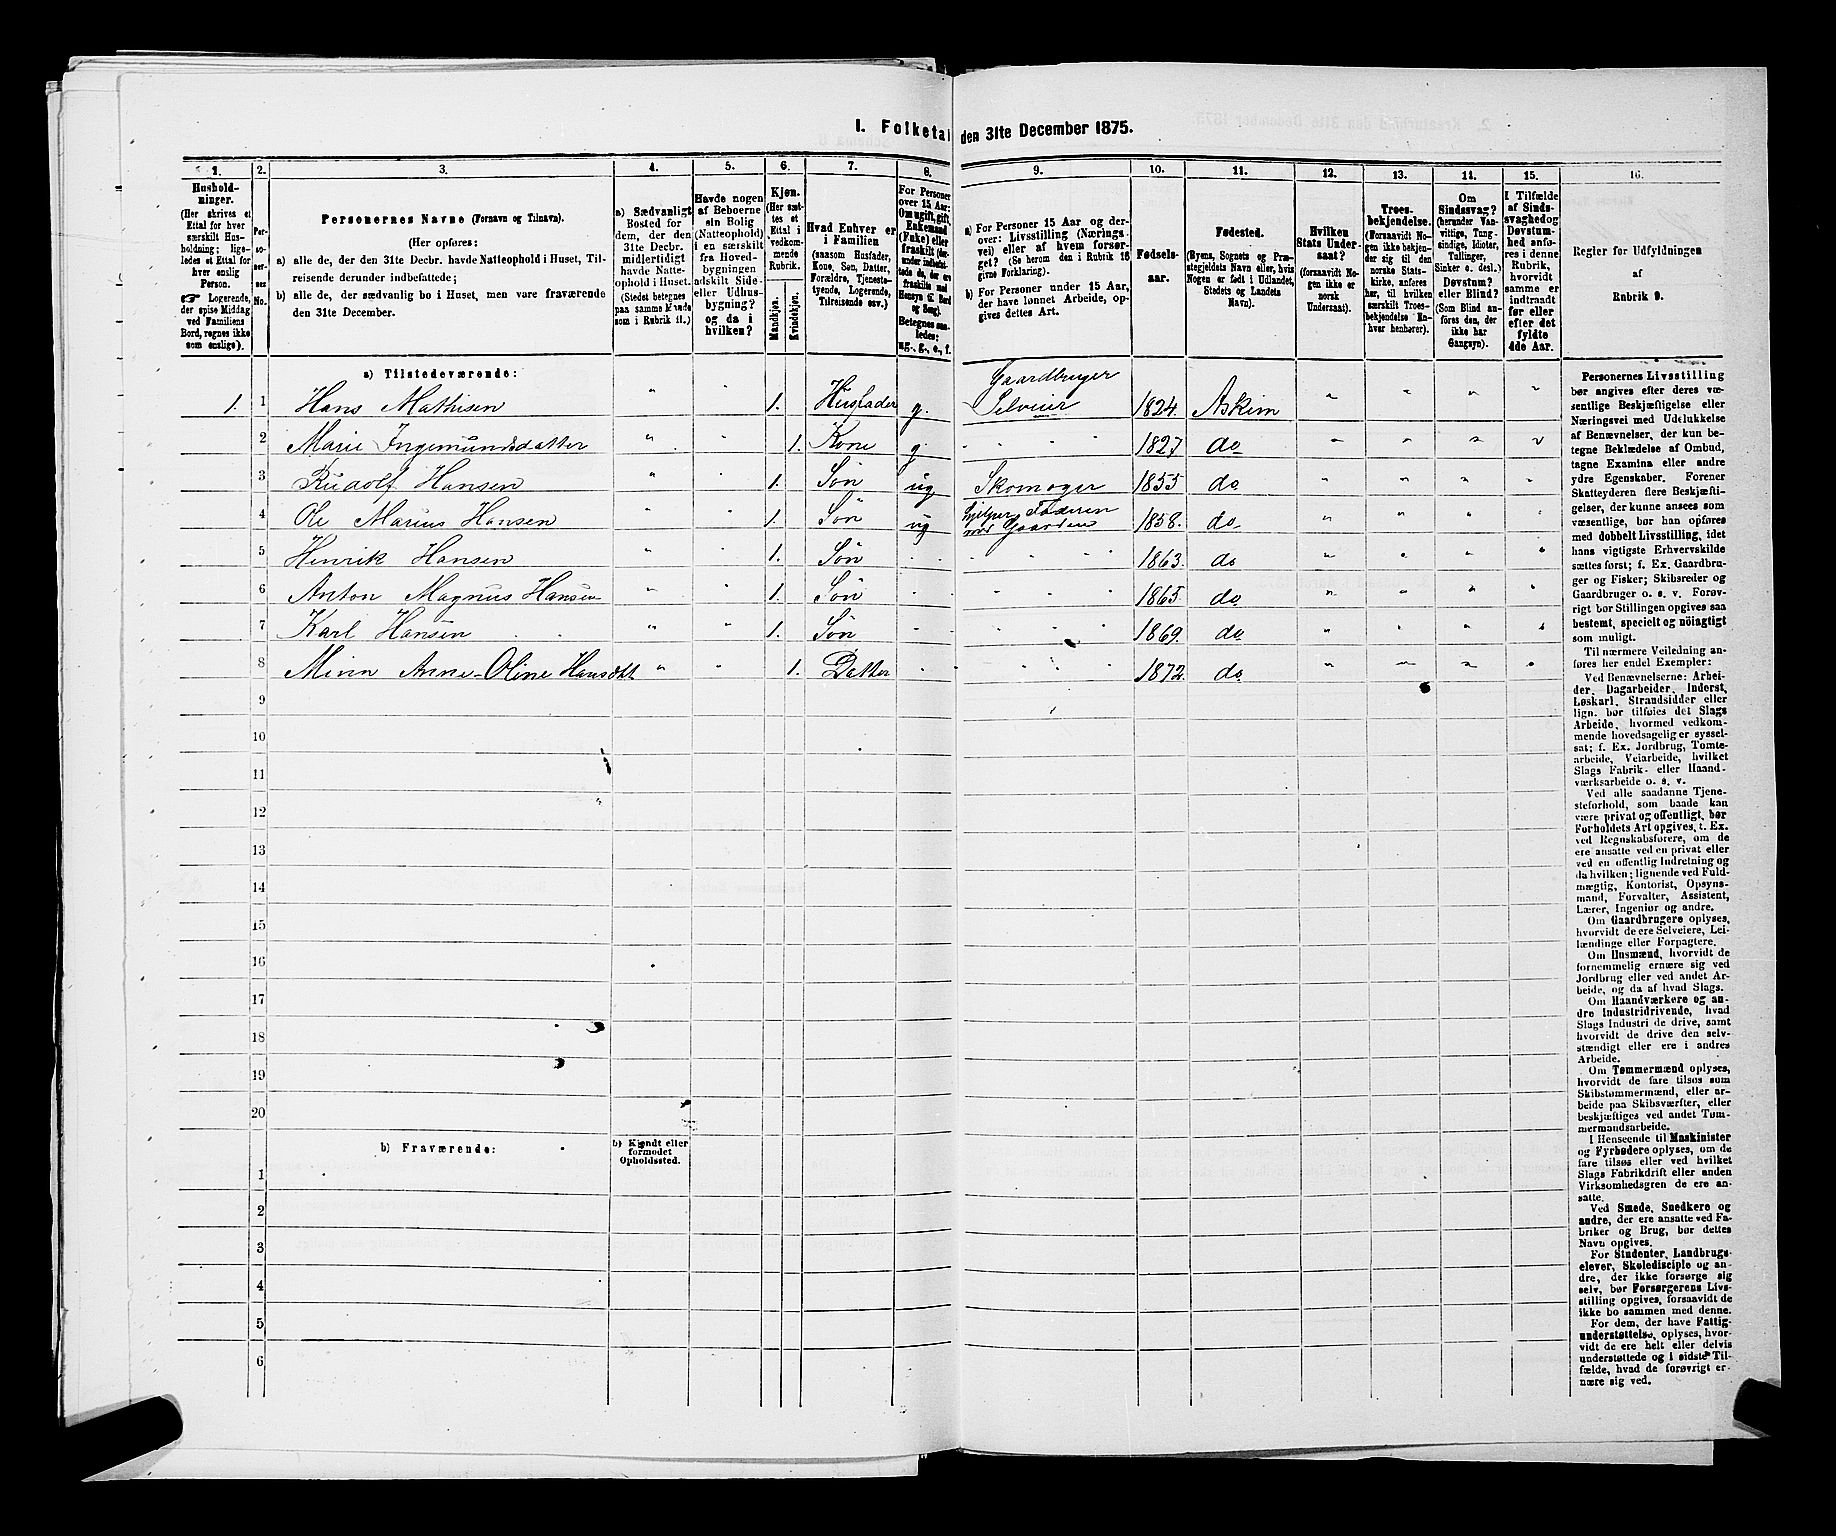 I. Folketal den 31te December 1875.
1.
Hushold-
ninger.
(Her skrives et
Ettal for hver
særskilt Hus-
holdning; lige-
ledes et Ettal for
hver enslig
Person.
Logerende,
der spise Middag
ved Familiens
Bord, regnes ikke
som enslige).
2.
Per-
so-
ner-
nes
No.
3.
Personernes Navne (Fornavn og Tilnavn).
(Her opføres:
a) alle de, der den 31te Decbr. havde Natteophold i Huset, Til-
reisende derunder indbefattede;
b) alle de, der sædvanlig bo i Huset, men vare fraværende
den 31te December.
4.
a) Sædvanligt
Bosted for
dem, der den
31te Decbr.
midlertidigt
havde Natte-
ophold i Huset.
(Stedet betegnes
paa samme Maade
som i Rubrik 11.)
5.
Havde nogen
af Beboerne
sin Bolig
(Natteophold)
i en særskilt
fra Hoved-
bygningen
adskilt Side-
eller Udhus-
bygning?
og da i
hvilken?
6.
Kjøn.
(Her sæt-
tes et
Ettal i
vedkom-
mende
Rubrik.
Mandkjøn.
Kvindekjøn.
7.
Hvad Enhver er
i Familien
(saasom Husfader,
Kone, Søn, Datter,
Forældre, Tjeneste-
tyende, Logerende,
Tilreisende osv.)
8.
For Personer
over 15 Aar:
Om ugift, gift,
Enkemand
(Enke) eller
fraskilt
Betegnes saa-
ledes:
ug., g., e., f.
9.
a) For Personer 15 Aar og der-
over: Livsstilling (Nærings-
vei) eller af hvem forsør-
get? (Se herom den i Rubrik 16
givne Forklaring).
b) For Personer under 15 Aar,
der have lønnet Arbeide, op-
gives dettes Art.
10.
Fødsels-
aar.
11.
Fødested.
(Byens, Sognets og Præ-
stegjeldets Navn eller, hvis
Nogen er født i Udlandet,
Stedets og Landets
Navn).
12.
Hvilken
Stats Under-
saat?
(forsaavidt No-
gen ikke er
norsk
Undersaat).
13.
Troes-
bekjendelse.
(Forsaavidt No-
gen ikke bekjen-
der sig til den
norske Stats-
kirke, anføres
her, til hvilken
særskilt Troes-
bekjendelse En-
hver henhører).
14.
Om
Sindssvag?
(herunder Van-
vittige, Tung-
sindige, Idioter,
Tullinger,
Sinker o. desl.)
Døvstum?
eller Blind?
(Som Blind an-
føres den, der
ikke har
Gangsyn).
15.
I Tilfælde
af Sinds-
svaghed og
Døvstum-
hed anfø-
res i denne
Rubrik,
samme er
indtraadt
før eller
efter det
fyldte
4de Aar.
16.
Regler for Udfyldningen
af
Rubrik 9.
a) Tilstedeværende:
1. 1 Hans Mathisen " 1. Husfader g. Gaardbruger Selveier 1824. Askim " " " "
2 Marie Ingemundsdatter " " 1. Kone g. " " " 1827. do " " " "
3 Rudolf Hansen " " 1. Søn ug Skomager 1855 do " " " "
4 Ole Marius Hansen " " 1. Søn ug hjelper Faderen med Gaarden 1858. do " " " "
5 Henrik Hansen " " 1. Søn " " " " 1863. do " " " "
6 Anton Magnus Hansen " " 1. Søn " " " " 1865. do " " " "
7 Karl Hansen " " 1. Søn " " " " 1869. do " " " "
8 Minn Anne Oline Hansdtt " " 1. Datter " " " " 1872. do " " " "
9
10
11
12
13
14
15
16
17
18
19
20
b) Fraværende:
b) Kjendt eller
formodet
Opholdssted.
1
2
3
4
5
6
Personernes Livsstilling
bør angives efter deres væ-
sentlige Beskjæftigelse eller
Næringsvei med Udelukkelse
af Benævnelser, der kun be-
tegne Beklædelse af Ombud,
tagne Examina eller andre
ydre Egenskaber. Forener
Skatteyderen flere Beskjæfti-
gelser, der kunne ansees som
væsentlige, bør han opføres
med dobbelt Livsstilling, idet
hans vigtigste Erhvervskilde
sættes først; f. Ex. Gaardbru-
ger og Fisker; Skibsreder og
Gaardbruger o. s. v. Forøv-
rigt bør Stillingen opgives saa
bestemt, specielt og nöiagtigt
som muligt.
Til nærmere Veiledning an-
føres her endel Exempler:
Ved Benævnelserne: Arbei-
der, Dagarbeider, Inderst,
Løskarl, Strandsidder eller
lign. bør tilføies det Slags
Arbeide, hvormed vedkom-
mende hovedsagelig er syssel-
sat; f. Ex. Jordbrug, Tomte-
arbeide, Veiarbeide, hvilket
Slags Fabrik- eller Haand-
værksarbeide o. s. v.
Ved alle saadanne Tjene-
steforhold, som baade kan
være privat og offentligt, bør
Forholdets Art opgives, f. Ex.
ved Regnskabsførere, om de
ere ansatte ved en privat eller
ved en offentlig Indretning og
da hvilken; lignende ved Fuld-
mægtig, Kontorist, Opsyns-
mand, Forvalter, Assistent,
Lærer, Ingeniør og andre.
Om Gaardbrugere oplyses,
hvorvidt de ere Selveiere, Lei-
lændinge eller Forpagtere.
Om Husmænd, hvorvidt de
fornemmelig ernære sig ved
Jordbrug eller ved andet Ar-
beide, og da af hvad Slags.
Om Haandværkere og an-
dre Industridrivende, hvad
Slags Industri de drive, samt
hvorvidt de drive den selv-
stændigt eller ere i andres
Arbeide.
Om Tømmermænd oplyses,
hvorvidt de fare tilsøs som
Skibstømmermænd, eller ar-
beide paa Skibsværfter, eller
beskjæftiges ved andet Tøm-
mermandsarbeide.
I Henseende til Maskinister
og Fyrbødere oplyses, om de
fare tilsøs eller ved hvilket
Slags Fabrikdrift eller anden
Virksomhedsgren de ere an-
satte.
Ved Smede, Snedkere og
andre, der ere ansatte ved Fa-
briker og Brug, bør dettes
Navn opgives.
For Studenter, Landbrugs-
elever, Skoledisciple og an-
dre, der ikke forsørge sig
selv, bør Forsørgerens Livs-
stilling opgives, forsaavidt de
ikke bo sammen med denne.
For dem, der have Fattig-
understøttelse, oplyses, hvor-
vidt de ere helt eller delvis
understøttede og i sidste Til-
fælde, hvad de forøvrigt er-
nære sig ved.